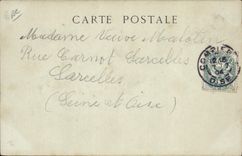 CARTE POSTALE
Madame Veuve
Rue Carnot Sarcelles
Sarcelles
(Seine et Oise)
COMPIEG
OISE